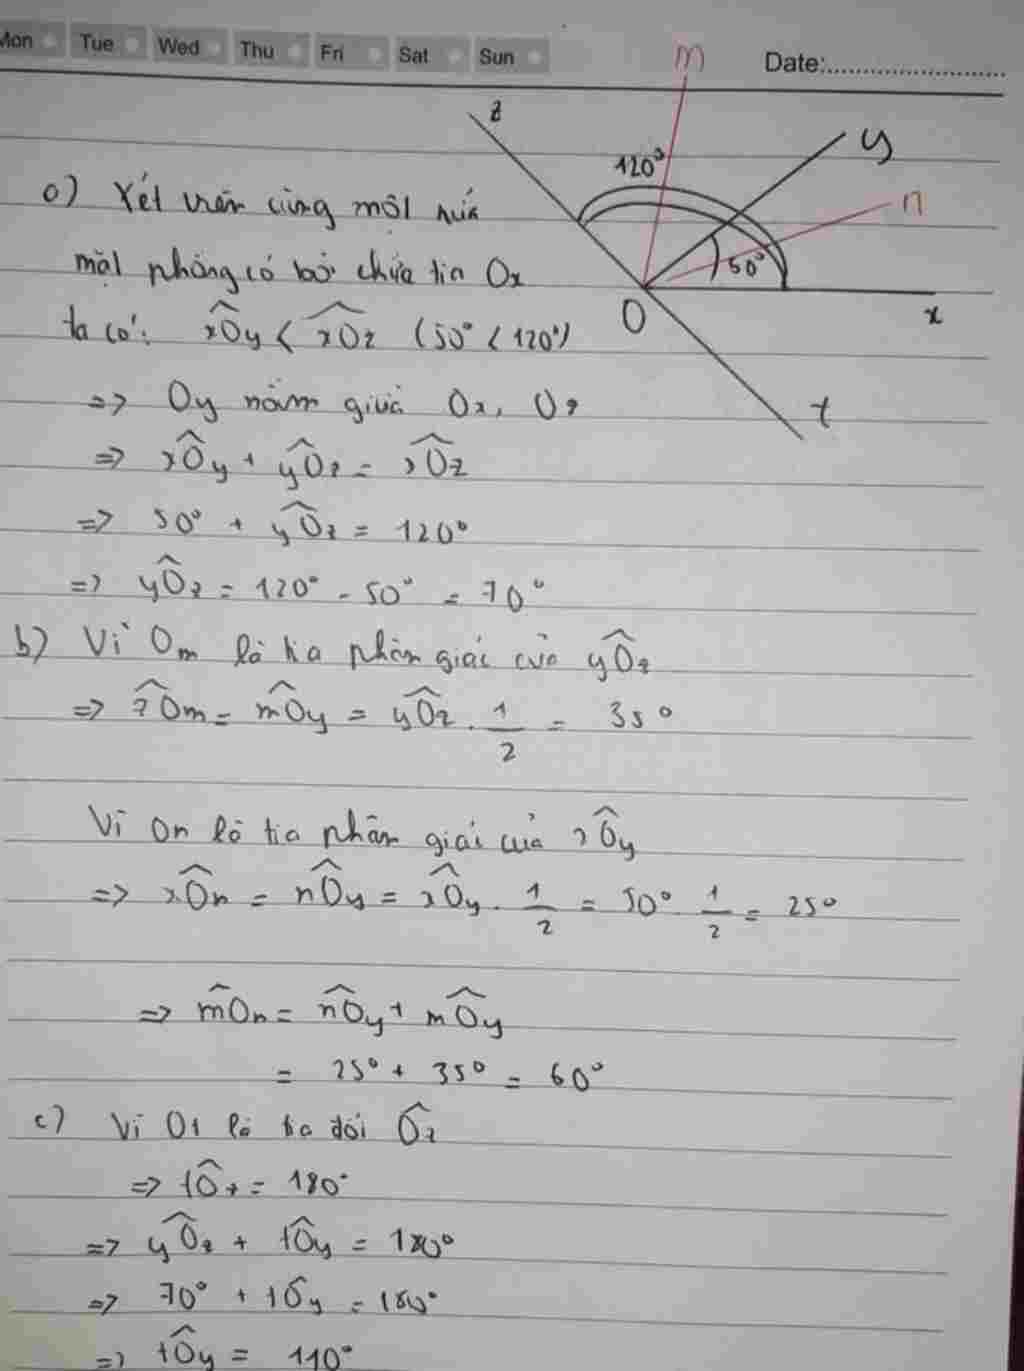 Mon Tue Wed Thu Fri Sat Sun Date:
m
z
y
120°
n
50°
O
x
t
a) Xét trên cùng một nửa
mặt phẳng có bờ chứa tia Ox
ta có: xÔy < xÔz (50° < 120°)
=> Oy nằm giữa Ox, Oz
=> xÔy + yÔz = xÔz
=> 50° + yÔz = 120°
=> yÔz = 120° - 50° = 70°
b) Vì Om là tia phân giác của yÔz
=> zÔm = mÔy = yÔz . 1/2 = 35°
Vì On là tia phân giác của xÔy
=> xÔn = nÔy = xÔy . 1/2 = 50° . 1/2 = 25°
=> mÔn = nÔy + mÔy
= 25° + 35° = 60°
c) Vì Ot là tia đối Ôz
=> tÔz = 180°
=> yÔz + tÔy = 180°
=> 70° + tÔy = 180°
=> tÔy = 110°